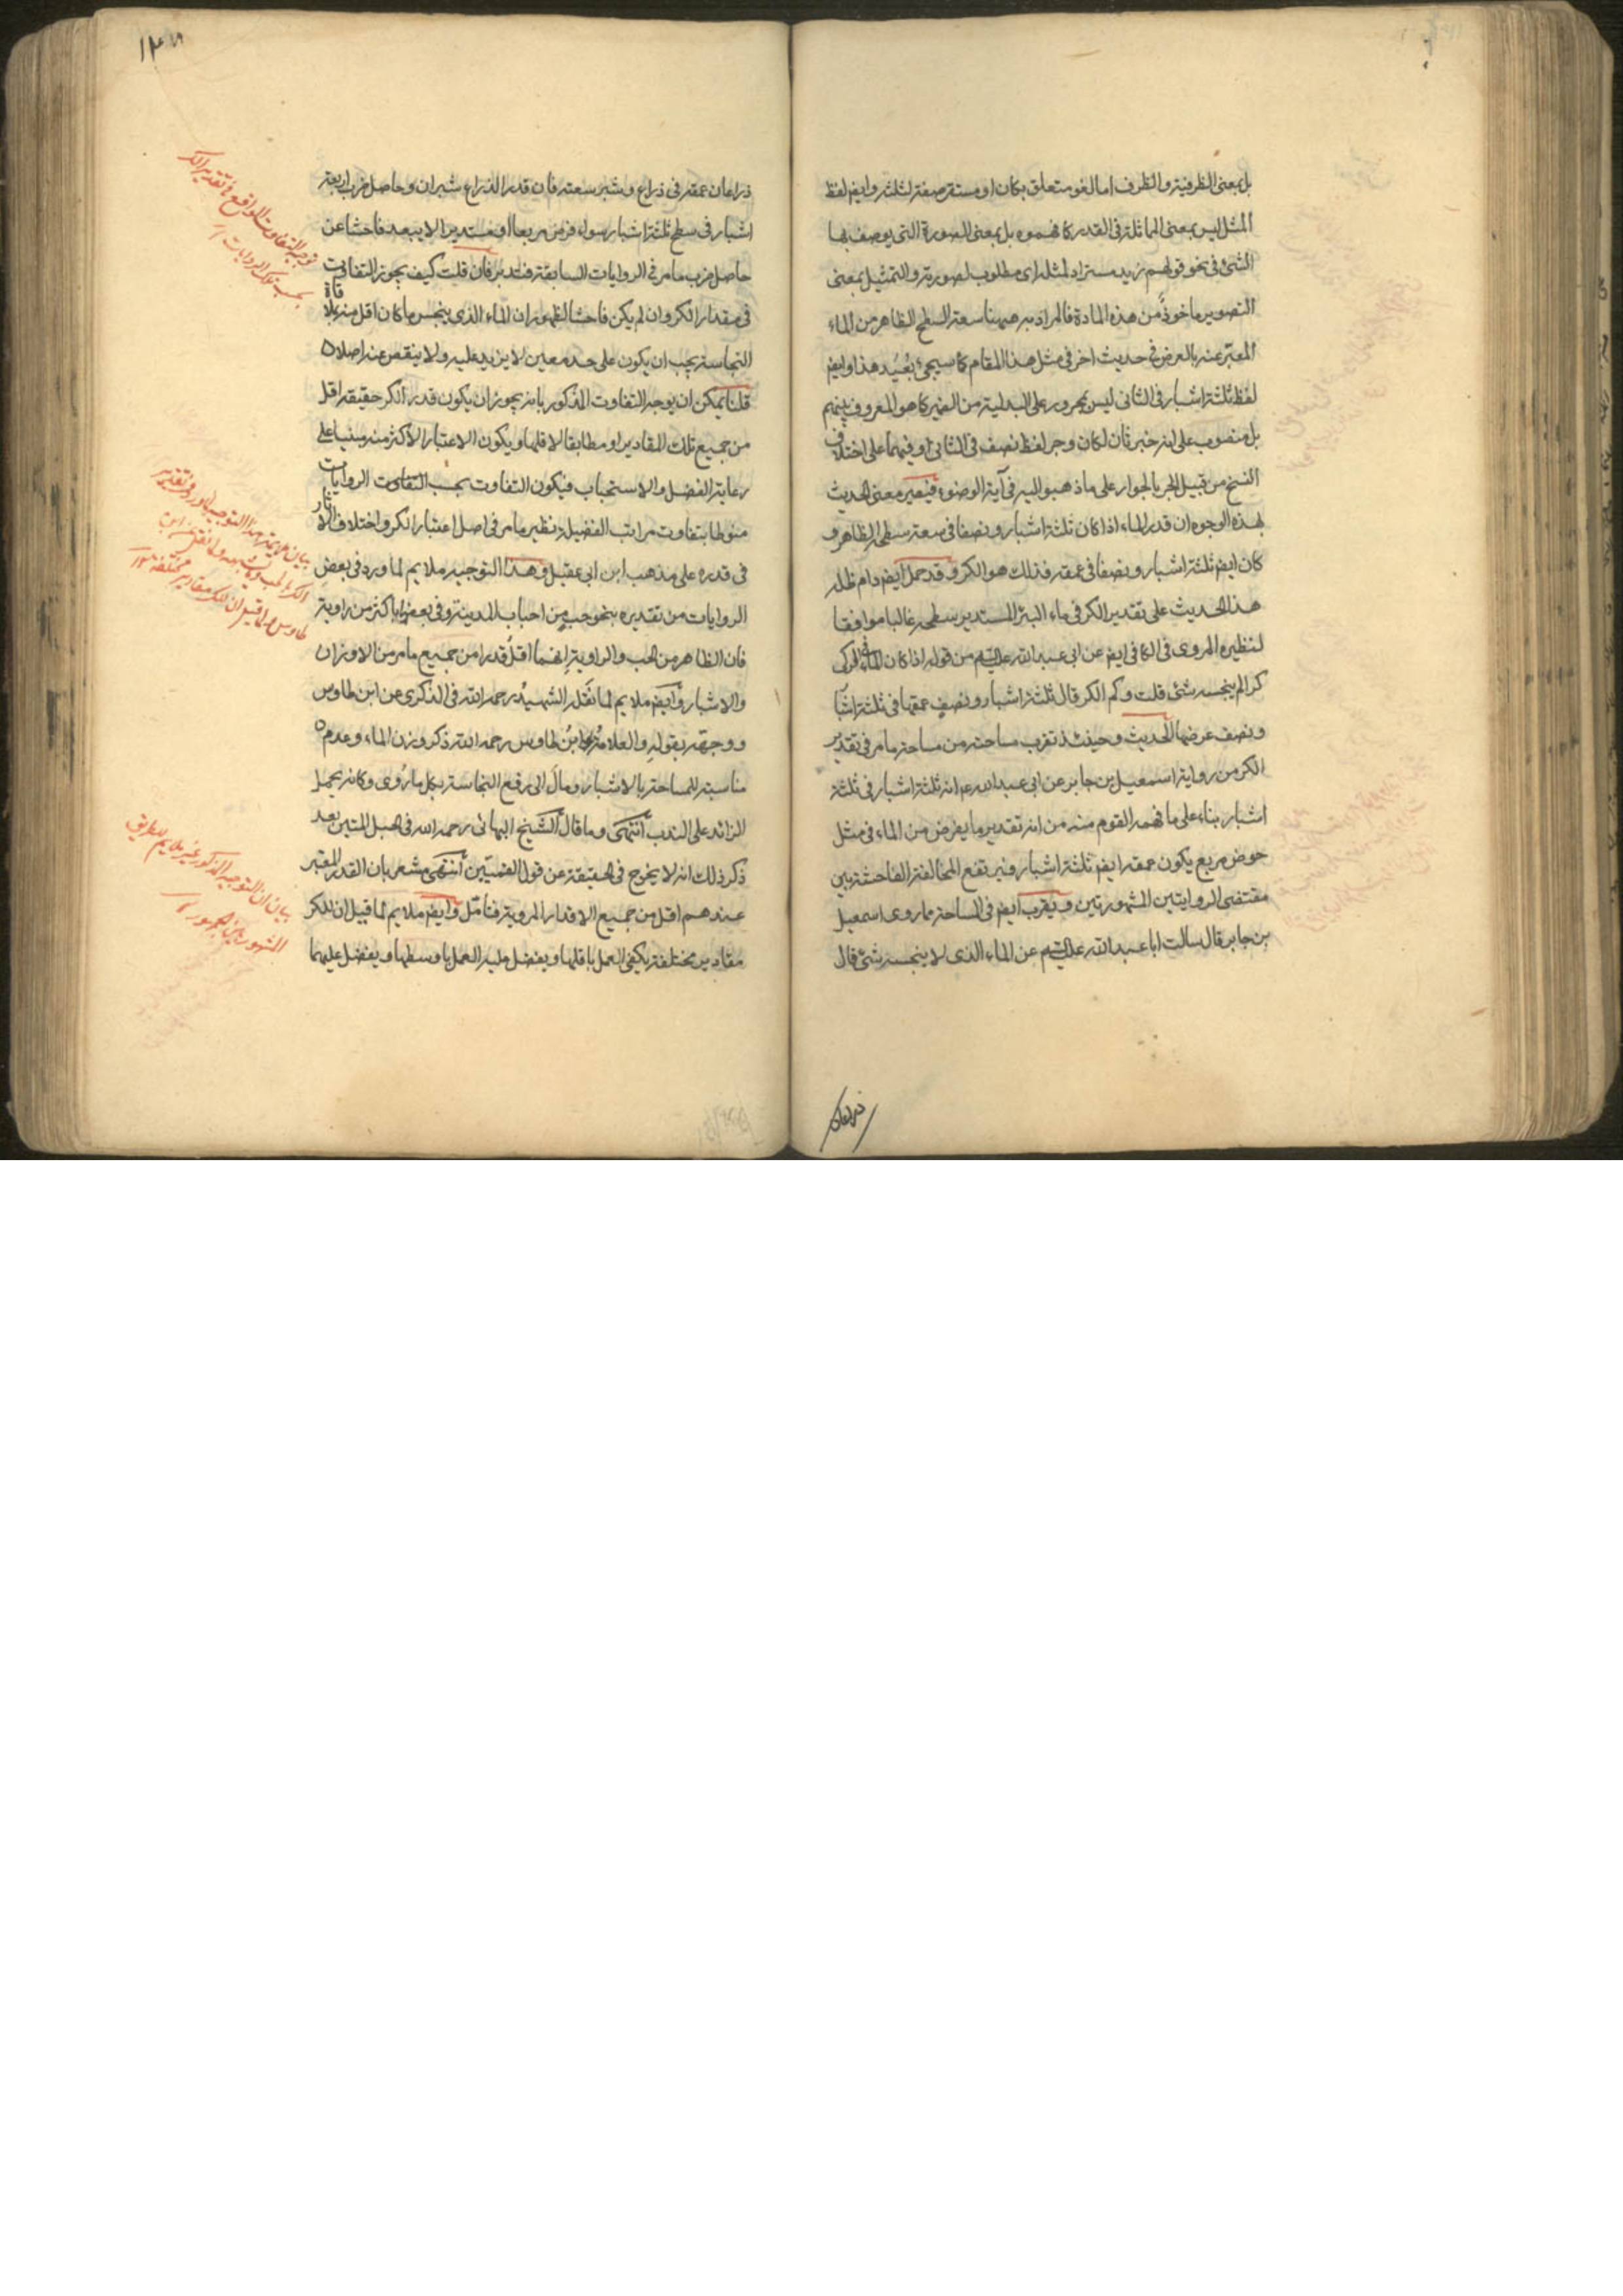 بل بمعنى الظرفية والظرف اما لغو متعلق بكان او مستقر صفة لثلثة وايضا لفظ
المثل ليس بمعنى المماثلة فى القدر كما فهموه بل بمعنى الصورة التى يوصف بها
الشئ فى نحو قولهم زيد مستزاد لمثله اى مطلوب لصورته والتمثيل بمعنى
التصوير ماخوذ من هذه المادة فالمراد به ههنا سعة السطح الظاهر من الماء
المعبر عنه بالعرض فى حديث اخر فى مثل هذا المقام كما سيجئ بُعَيد هذا وايضا
لفظ ثلثة اشبار فى الثانى ليس بمجرور على البدلية من الضمير كما هو المعروف بينهم
بل منصوب على انه خبر ثان لكان وجر لفظ نصف فى الثانى او فيهما على اختلاف
النسخ من قبيل الجر بالجوار على ما ذهبوا اليه فى آية الوضوء فيصير معنى الحديث
بهذه الوجوه ان قدر الماء اذا كان ثلثة اشبار ونصفا فى سعة سطحه الظاهر و
كان ايضا ثلثة اشبار ونصفا فى عمقه فذلك هو الكر وقد حمل ايضا دام ظله
هذا الحديث على تقدير الكر فى ماء البئر المستدير سطحه غالبا موافقا
لنظيره المروى فى الكافى ايضا عن ابى عبد الله عليه السلام من قوله اذا كان الماء فى الركى
كرا لم ينجسه شئ قلت وكم الكر قال ثلثة اشبار ونصف عمقها فى ثلثة اشبا
ونصف عرضها الحديث وحينئذ تقرب مساحته من مساحة ما مر فى تقدير
الكر من رواية اسمعيل بن جابر عن ابى عبد الله ع انه ثلثة اشبار فى ثلثة
اشبار بناء على ما فهمه القوم منه من انه تقدير ما يفرض من الماء فى مثل
حوض مربع يكون عمقه ايضا ثلثة اشبار فيرتفع المخالفة الفاحشة بين
مقتضى الروايتين المشهورتين ويقرب ايضا فى المساحة ما روى اسمعيل
بن جابر قال سالت ابا عبد الله عليه السلام عن الماء الذى لا ينجسه شئ قال
ذراعان
ذراعان عمقه فى ذراع وشبر سعته فان قدر الذراع شبران وحاصل ضرب اربعة
اشبار فى سطح ثلثة اشبار سواء فرض مربعا او مستديرا لا يبعد فاحشا عن
حاصل ضرب ما مر فى الروايات السابقة فتدبر فان قلت كيف يجوز التفاوت
فى مقدار الكر وان لم يكن فاحشا لظهور ان الماء الذى ينجس ما كان اقل منه بملاقاة
النجاسة يجب ان يكون على حد معين لا يزيد عليه ولا ينقص عنه اصلا
قلنا يمكن ان يوجه التفاوت المذكور بانه يجوز ان يكون قدر الكر حقيقة اقل
من جميع تلك المقادير او مطابقا لاقلها ويكون الاعتبار الاكثر منه مبنيا على
رعاية الفضل والاستحباب فيكون التفاوت بحسب التفاوت الروايات
منوطا بتفاوت مراتب الفضيلة نظير ما مر فى اصل اعتبار الكر واختلاف الاثار
فى قدره على مذهب ابن ابى عقيل وهذا التوجيه ملايم لما ورد فى بعض
الروايات من تقديره بنحو حب من احباب المدينة وفى بعضها باكثر من راوية
فان الظاهر من الحب والراوية انهما اقل قدرا من جميع ما مر من الاوزان
والاشبار وايضا ملايم لما نقله الشهيد رحمه الله فى الذكرى عن ابن طاوس
ووجهه بقوله والعلامة ابن طاوس رحمه الله ذكر وزن الماء وعدم
مناسبته للمساحة بالاشبار ومال الى رفع النجاسة بكل ما روى وكانه يحمل
الزائد على الندب انتهى وما قال الشيخ البهائى رحمه الله فى حبل المتين بعد
ذكر ذلك انه لا يخرج فى الحقيقة عن قول القميين انتهى مشعر بان القدر المعتبر
عندهم اقل من جميع الاقدار المروية فتامل وايضا ملايم لما قيل ان للكر
مقادير مختلفة يكفى العمل باقلها ويفضل عليه العمل باوسطها ويفضل عليهما
توجيه التفاوت الواقع فى تقدير الكر
بحسب تلك الروايات
بيان ملايمة هذا التوجيه لما ورد فى تقدير
الكر بالحب
طاوس ولما قيل ان للكر مقادير مختلفة
بيان ان التوجيه المذكور غير ملايم لطريق
المشهور بين الجمهور